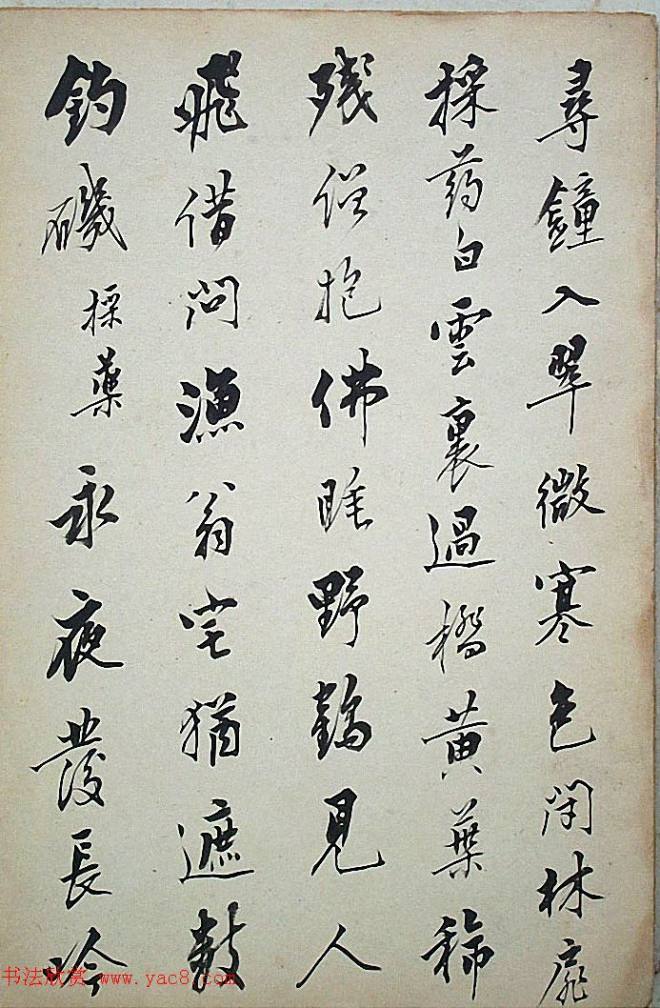 尋鐘入翠微寒色閉林扉
採药白雲裏過橋黄葉稀
残僧抱佛睡野鶴見人
飛借問漁翁宅猶遮数
釣磯採藥永夜發長吟
书法欣赏 www.yac8.com